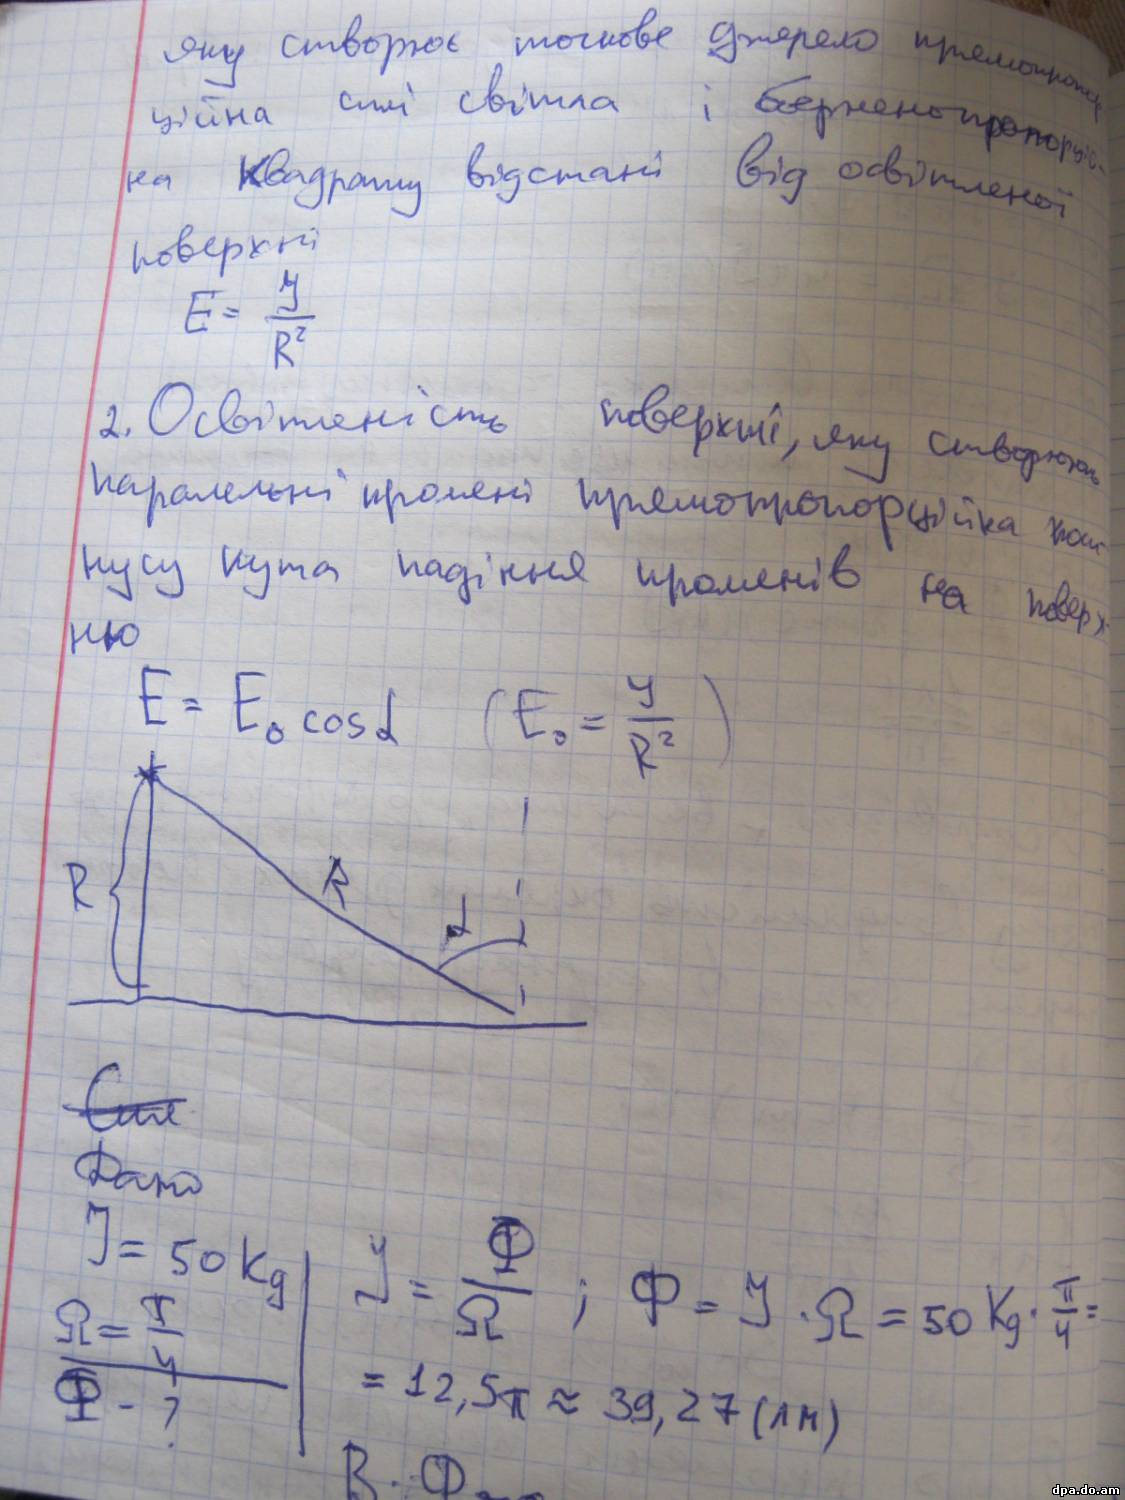 яку створює точкове джерело прямопропор
ційна силі світла і обернено пропорцій-
на квадрату відстані від освітленої
поверхні
E = J/R²
2. Освітленість поверхні, яку створюють
паралельні промені прямопропорційна коси
нусу кута падіння променів на поверх-
ню
E = E₀ cosα (E₀ = J/R²)
R
R
α
Дано
J = 50 Кд
Ω = π/4
Ф - ?
J = Ф/Ω ; Ф = J · Ω = 50 Кд · π/4 =
= 12,5π ≈ 39,27 (лм)
dpa.do.am